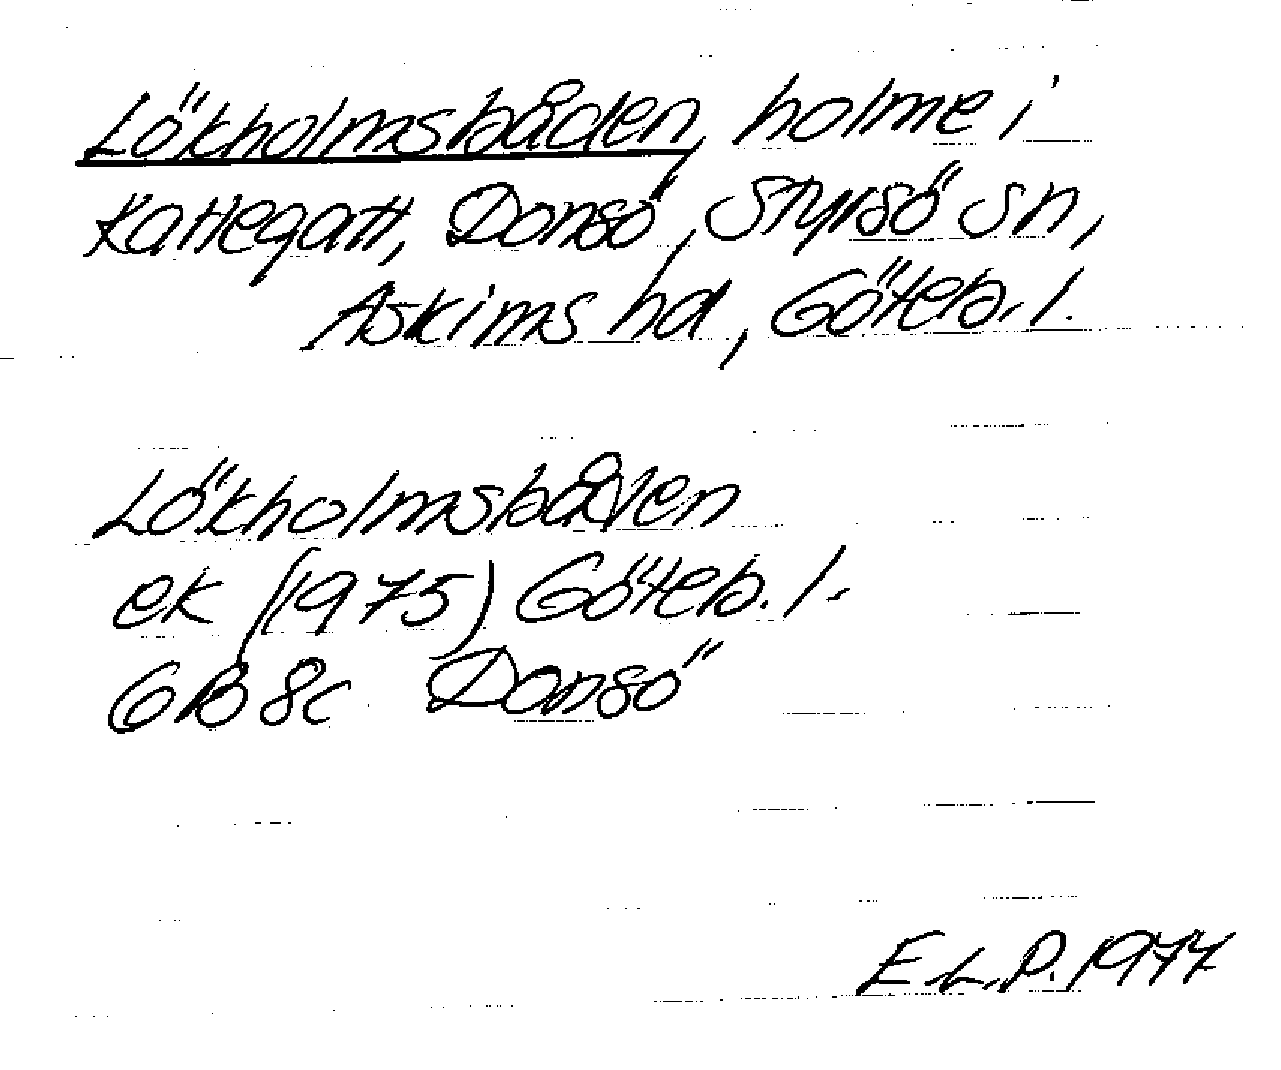 Lökholmsbåden, holme i
Kattegatt, Donsö, Styrsö sn,
Askims hd, Göteb. l.
Lökholmsbåden
ek (1975) Göteb. l.
GB 8c Donsö
E.L.P. 1977